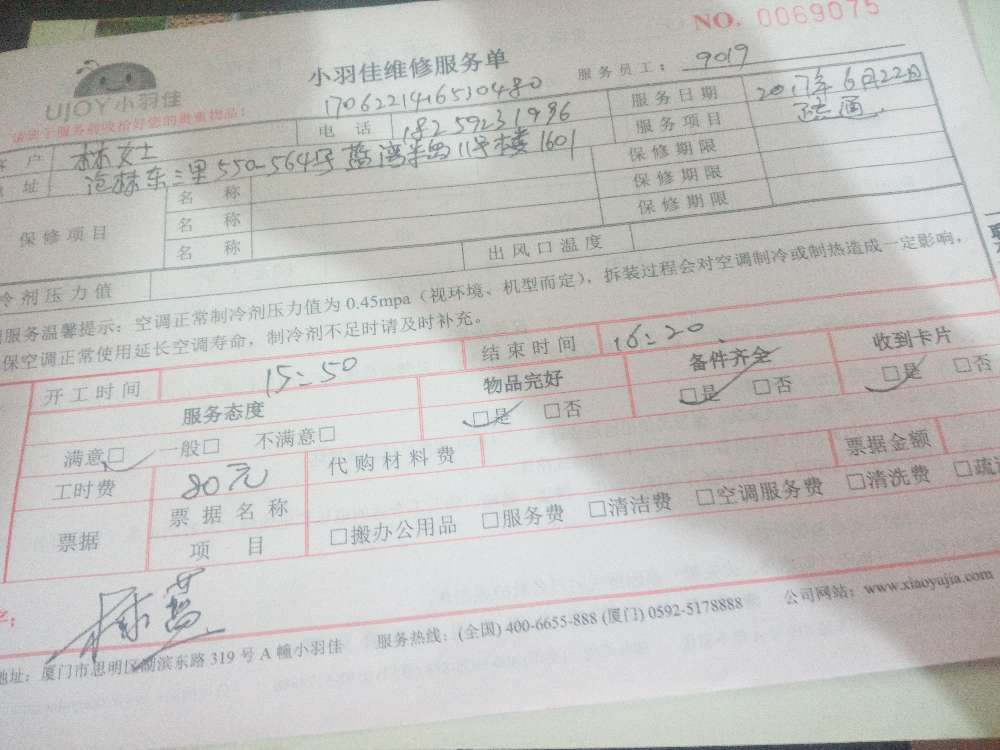 NO. 0069075
UJOY小羽佳
小羽佳维修服务单
服务员工: 9019
1706221416530480
请您于服务前收拾好您的贵重物品:
客 户 林女士 电 话 18259231996 服务日期 2017年6月22日
地 址 沧林东三里550-564号蓝湾半岛11号楼1601 服务项目 疏通
保修项目
名 称 保修期限
名 称 保修期限
名 称 保修期限
冷剂压力值 出风口温度
服务温馨提示: 空调正常制冷剂压力值为 0.45mpa (视环境、机型而定), 拆装过程会对空调制冷或制热造成一定影响,
保空调正常使用延长空调寿命, 制冷剂不足时请及时补充。
开工时间 15:50 结束时间 16:20
服务态度 物品完好 备件齐全 收到卡片
满意□ 一般□ 不满意□ □是 □否 □是 □否 □是 □否
工时费 80元 代购材料费 票据金额
票据 票据名称 □搬办公用品 □服务费 □清洁费 □空调服务费 □清洗费 □疏
项 目
地址: 厦门市思明区湖滨东路 319 号 A 幢小羽佳 服务热线: (全国) 400-6655-888 (厦门) 0592-5178888 公司网站: www.xiaoyujia.com